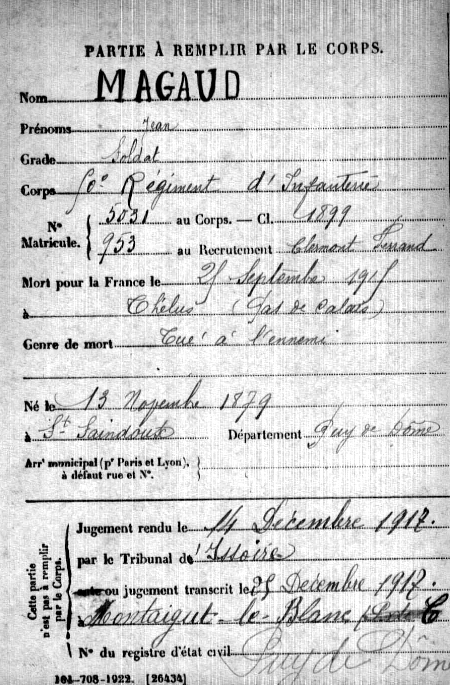 PARTIE À REMPLIR PAR LE CORPS.
Nom MAGAUD
Prénoms Jean
Grade Soldat
Corps 50e Régiment d'Infanterie
N° Matricule. 5031 au Corps. — Cl. 1899
953 au Recrutement Clermont Ferrand
Mort pour la France le 25 Septembre 1915
à Thélus (Pas de Calais)
Genre de mort Tué à l'ennemi
Né le 13 Novembre 1879
à St Saindoux Département Puy de Dôme
Arrt municipal (pr Paris et Lyon), à défaut rue et N°.
Cette partie n'est pas à remplir par le Corps.
Jugement rendu le 14 Décembre 1917.
par le Tribunal de Issoire
ou jugement transcrit le 25 Décembre 1917.
à Montaigut-le-Blanc
N° du registre d'état civil Puy de Dôme
-708-1922. [26434]